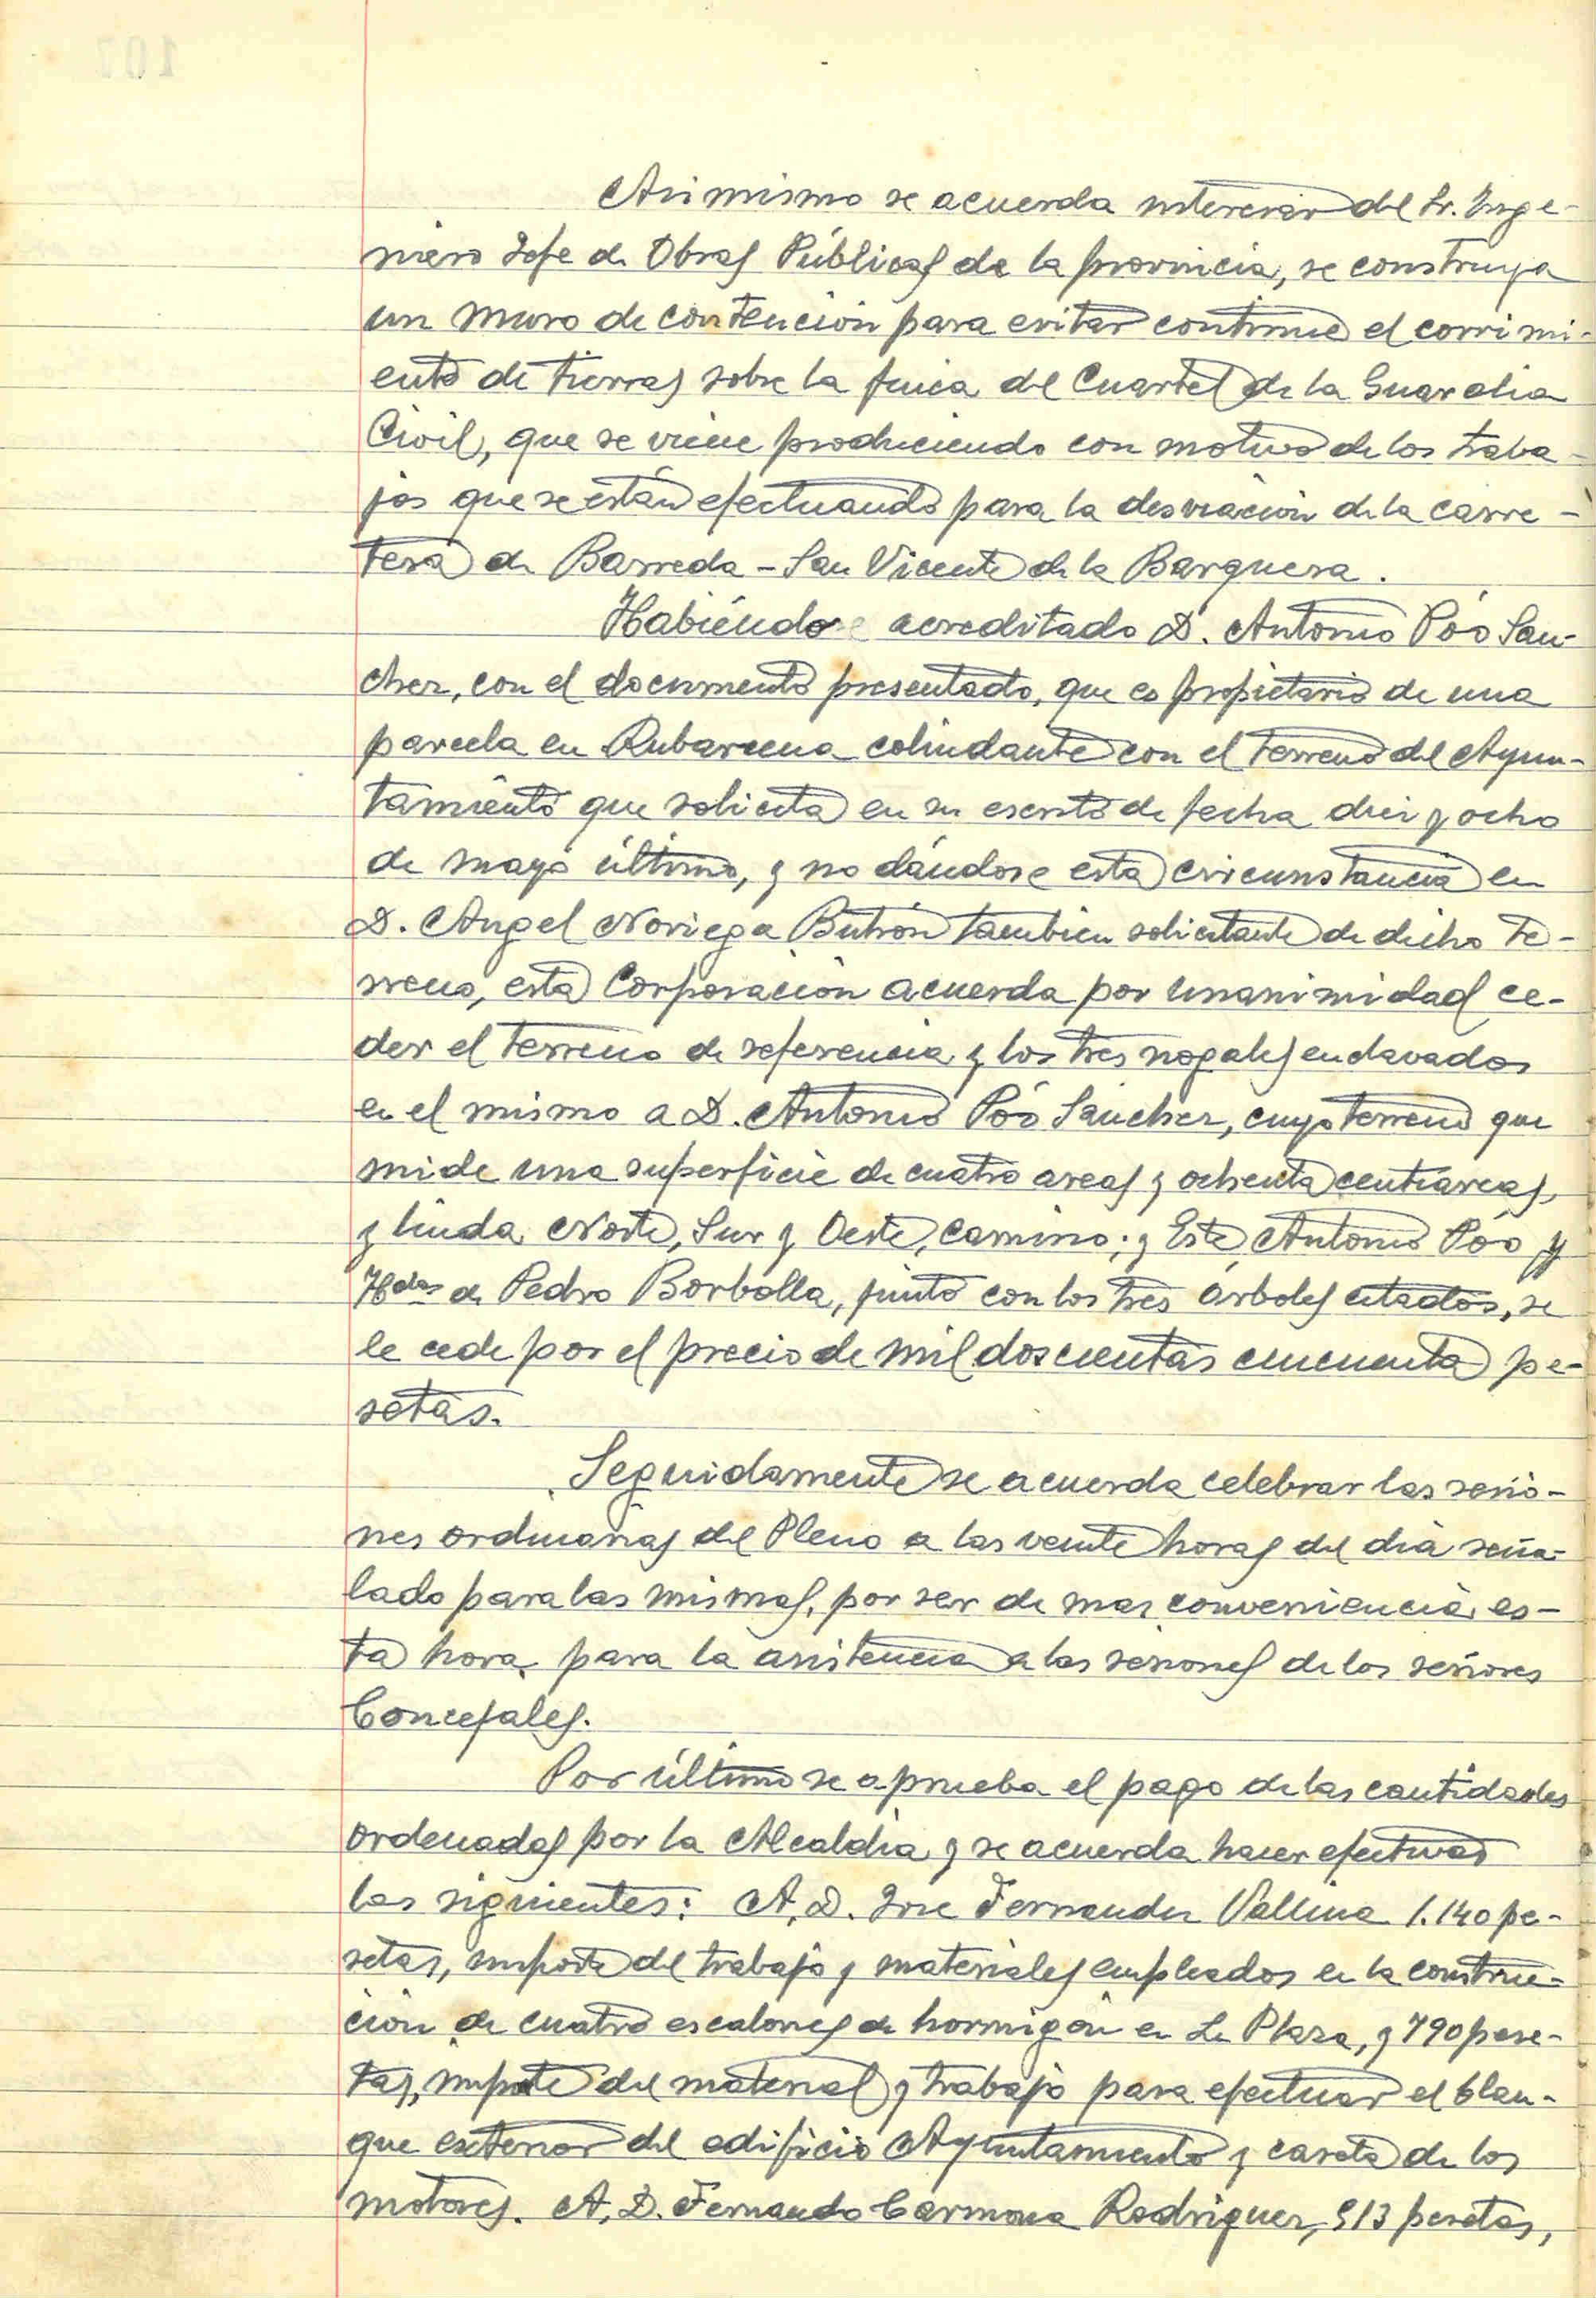 Asimismo se acuerda interesar del Sr. Inge-
niero Jefe de Obras Públicas de la provincia, se construya
un muro de contención para evitar continue el corrimi-
ento de tierras sobre la finca del Cuartel de la Guardia
Civil, que se viene produciendo con motivo de los traba-
jos que se están efectuando para la desviación de la carre-
tera de Barreda - San Vicente de la Barquera.
Habiéndose acreditado D. Antonio Póo San-
chez, con el documento presentado, que es propietario de una
parcela en Rubarcena colindante con el terreno del Ayun-
tamiento que solicita en su escrito de fecha diez y ocho
de mayo último, y no dándose esta circunstancia en
D. Angel Noriega Butrón tambien solicitante de dicho te-
rreno, esta Corporación acuerda por unanimidad ce-
der el terreno de referencia y los tres nogales enclavados
en el mismo a D. Antonio Póo Sanchez, cuyo terreno que
mide una superficie de cuatro areas y ochenta centiareas,
y linda Norte, Sur y Oeste, camino; y Este, Antonio Póo y
Hdos de Pedro Borbolla, junto con los tres árboles citados, se
le cede por el precio de mil doscientas cincuenta pe-
setas.
Seguidamente se acuerda celebrar las sesio-
nes ordinarias del Pleno a las veinte horas del día seña-
lado para las mismas, por ser de mas conveniencia es-
ta hora para la asistencia a las sesiones de los señores
Concejales.
Por último se aprueba el pago de las cantidades
ordenadas por la Alcaldía y se acuerda hacer efectivas
las siguientes: A, D. Jose Fernandez Vallina 1.140 pe-
setas, importe del trabajo y materiales empleados en la construc-
ción de cuatro escalones de hormigón en La Plaza, y 790 pese-
tas, importe del material y trabajo para efectuar el blan-
queo exterior del edificio Ayuntamiento y caseta de los
motores. A, D. Fernando Carmona Rodriguez, 913 pesetas,